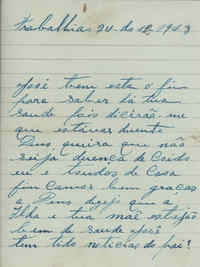 Trabalhia 24-do 12-1943
José tem esta o fin
para saber da tua
saude pois diceram-me
que estavas duente
Deus queira que não
seija duença de Coido
eu e toudos de Casa
ficamos bem graças
a Deus deijo que a
Ilha e tua mãe estejão
bem de saude José
tem tido noticias do pai?